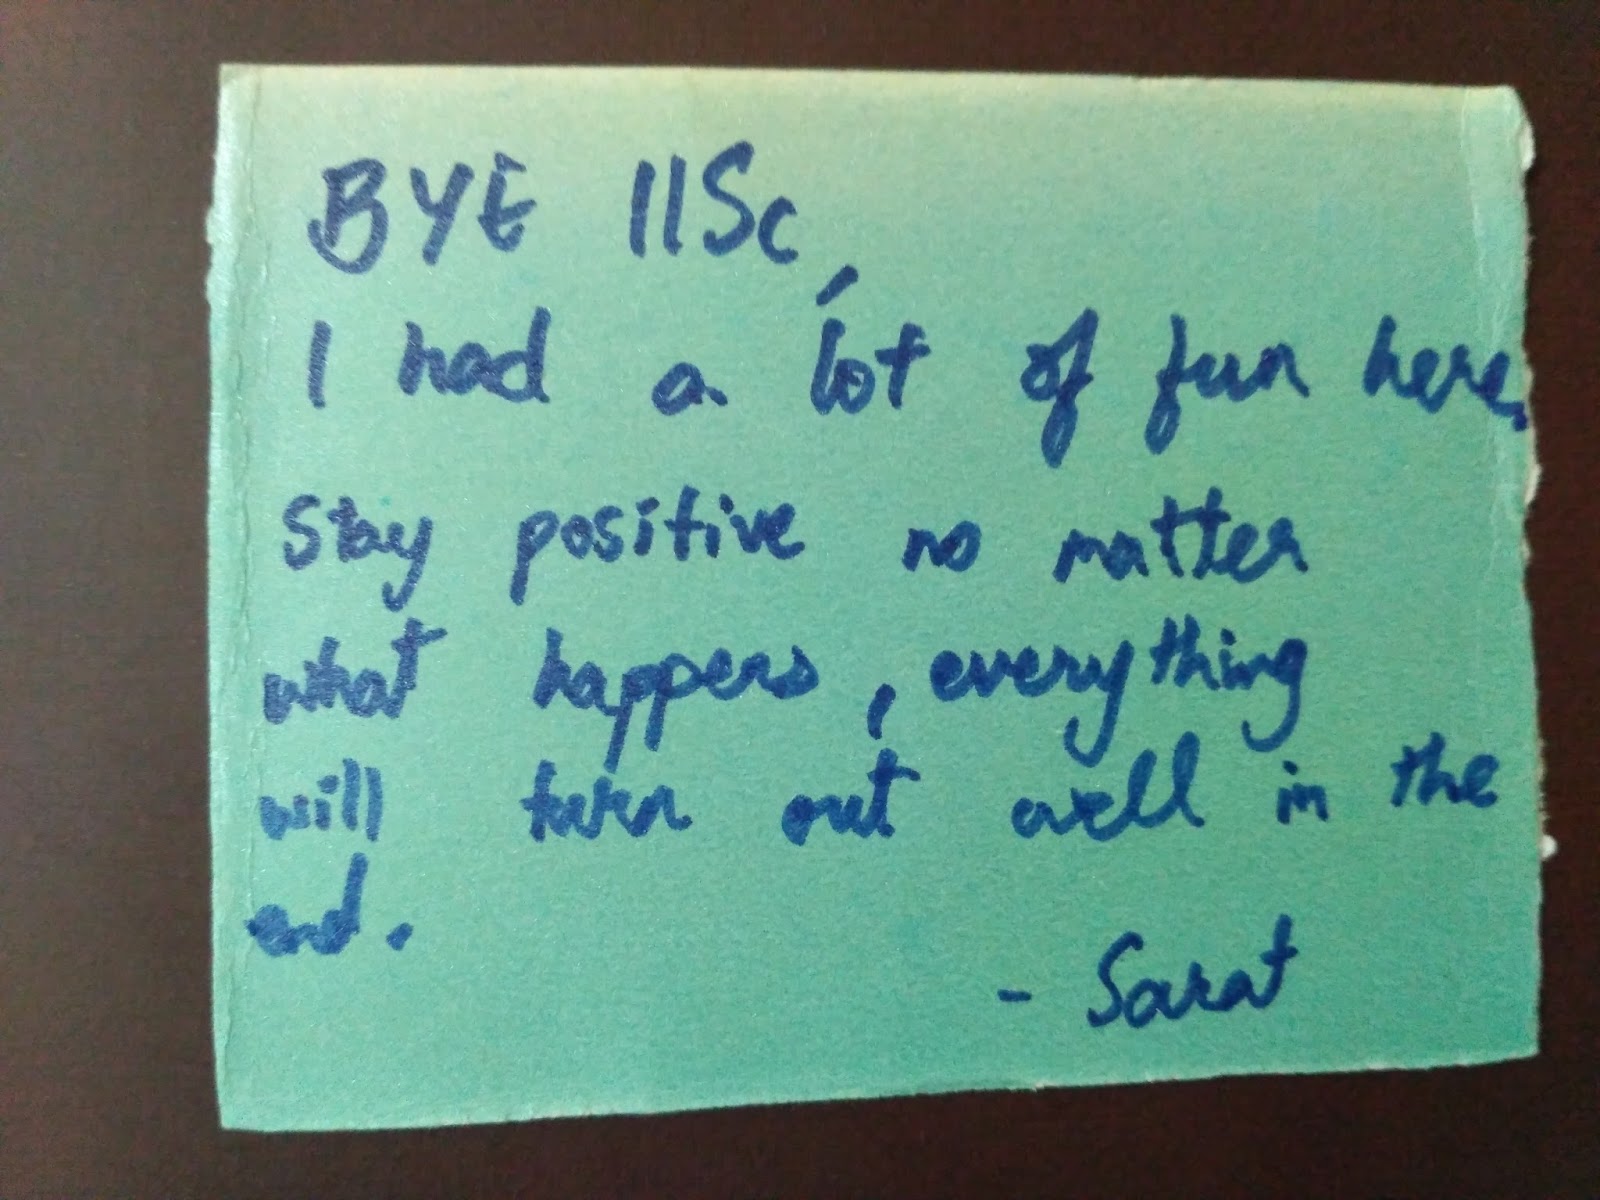 BYE IISc,
I had a lot of fun here.
Stay positive no matter
what happens, everything
will turn out well in the
end.
- Sarat